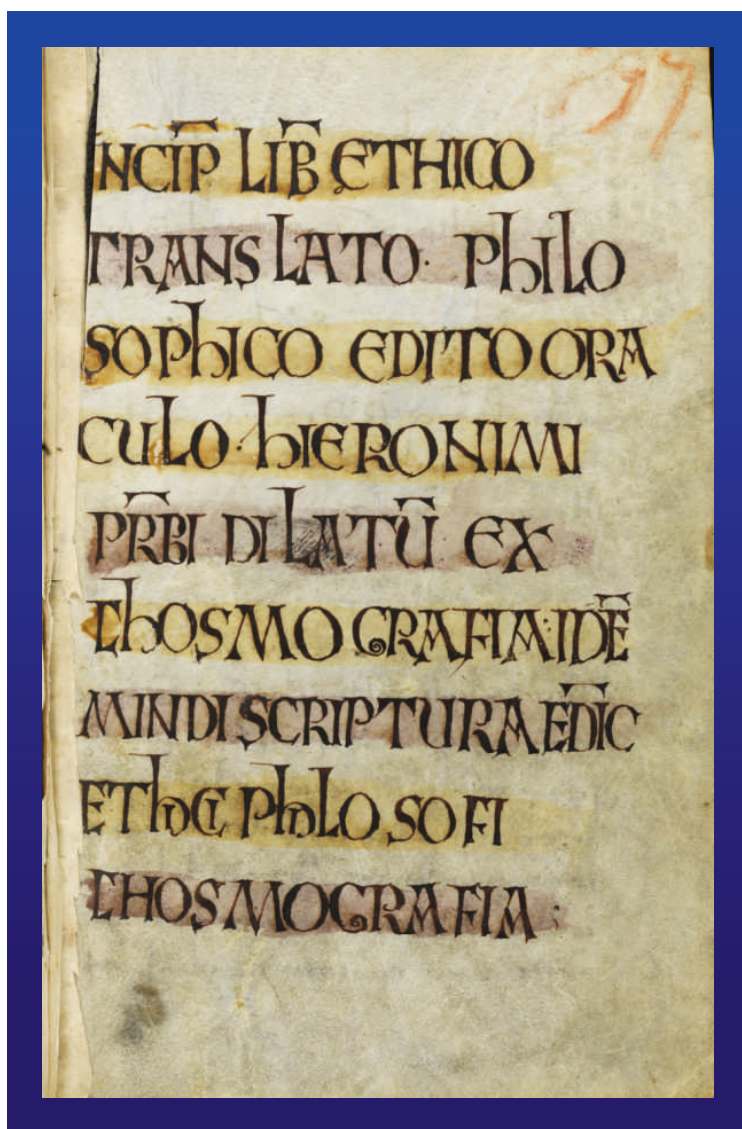 INCIP̄ LIB̄ ETHICO
TRANSLATO· PhILO
SOPhICO EDITO ORA
CULO· hIERONIMI
PR̄BI DILATŪ EX
ChOSMOGRAFIA· IDĒ
MINDI SCRIPTURA EDIC̄
EThICI PhILOSOFI
CHOSMOGRAFIA: